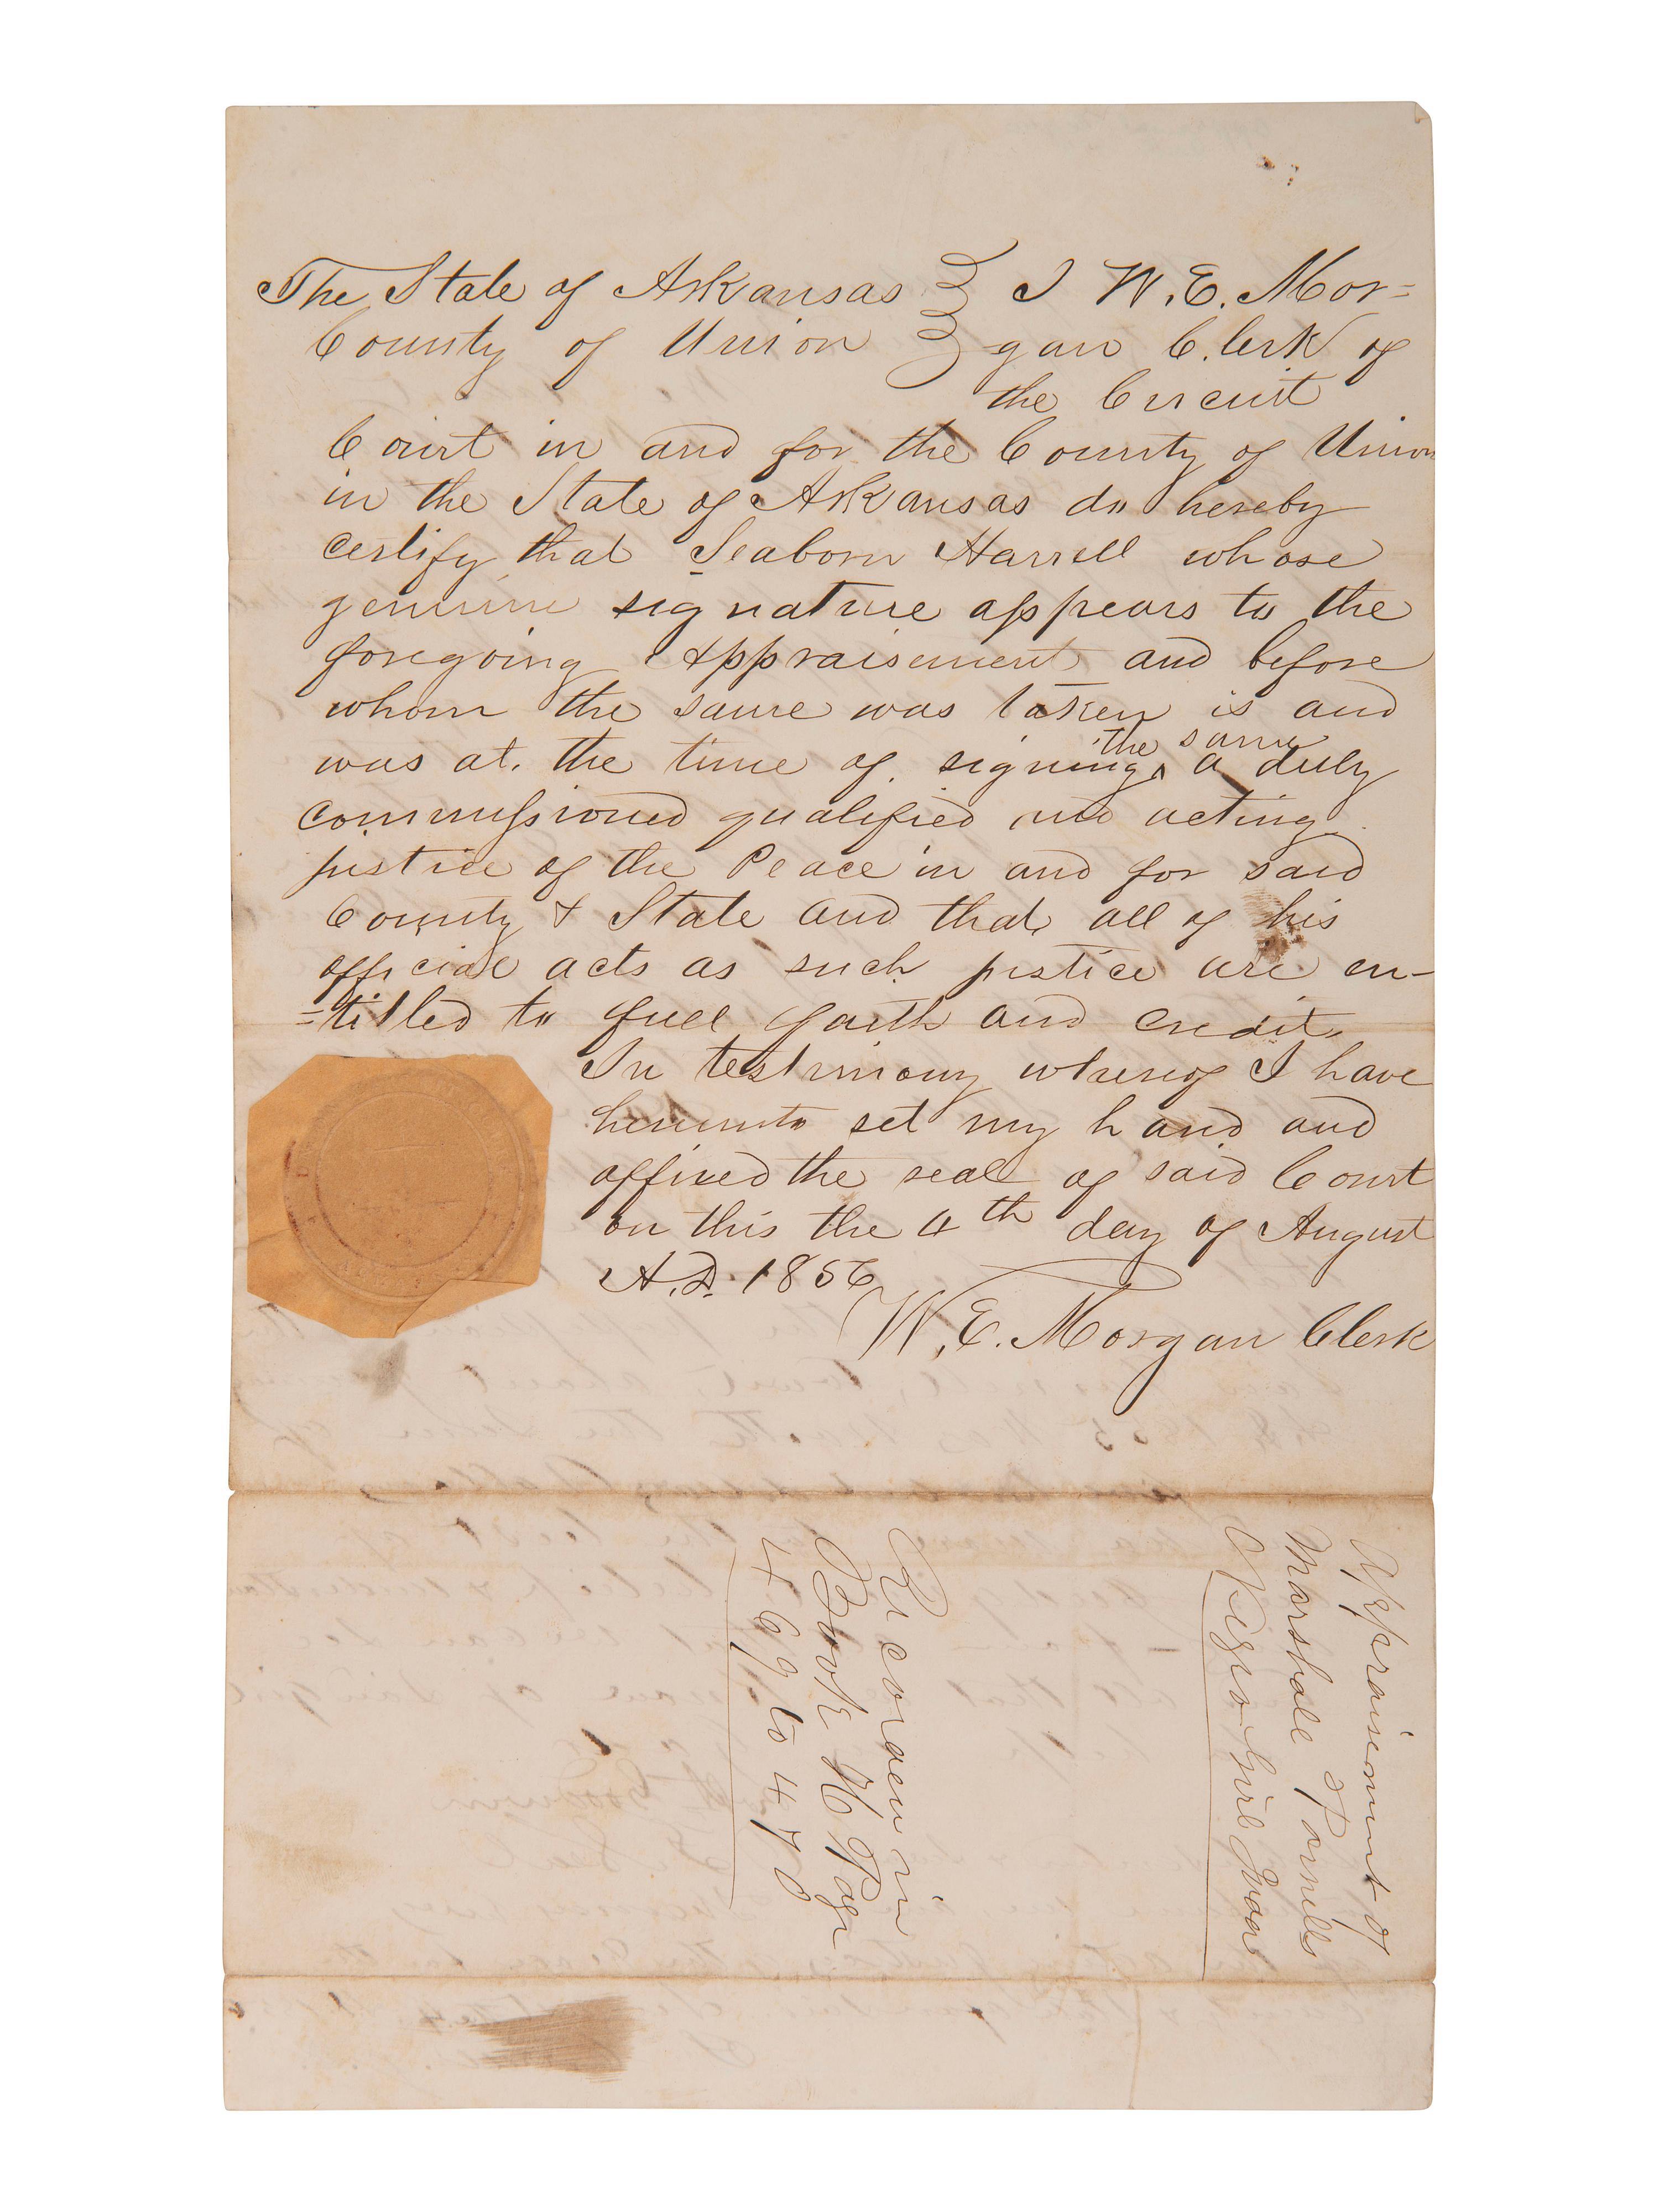 The State of Arkansas } I W. E. Mor=
County of Union } gan Clerk of
the Circuit
Court in and for the County of Union
in the State of Arkansas do hereby
certify that Seaborn Harrell whose
genuine signature appears to the
foregoing Appraisement and before
whom the same was taken is and
was at the time of signing ^ the same a duly
commissioned qualified and acting
justice of the Peace in and for said
County & State and that all of his
official acts as such justice are en-
=titled to full faith and credit.
In testimony whereof I have
hereunto set my hand and
affixed the seal of said Court
on this the 4th day of August
A.D. 1856
W. E. Morgan Clerk
Appraisement of
Marshall
Negro Girl
Recorded in
Book H Page
469 to 470